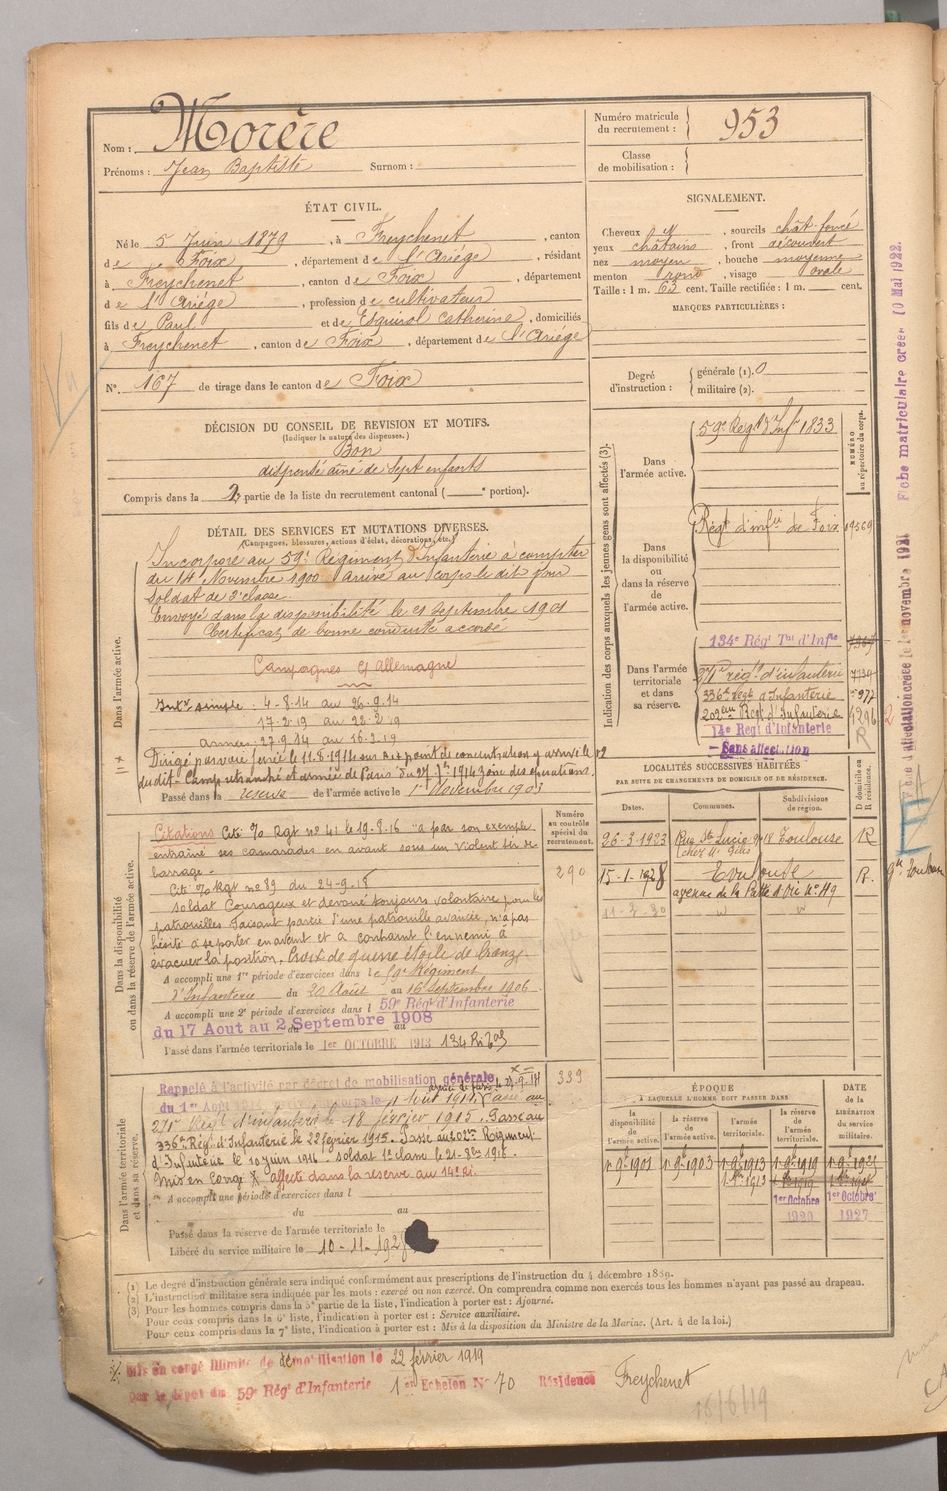 Nom : Morère
Prénoms : Jean Baptiste Surnom :
Numéro matricule du recrutement : 953
Classe de mobilisation :
ÉTAT CIVIL.
Né le 5 Juin 1879, à Freychenet, canton
de Foix, département de l'Ariége, résidant
à Freychenet, canton de Foix, département
de l'Ariége, profession de cultivateur
fils de Paul et de Esquirol Catherine, domiciliés
à Freychenet, canton de Foix, département de l'Ariége
N° 167 de tirage dans le canton de Foix
SIGNALEMENT.
Cheveux, sourcils chât. foncé
yeux châtains, front découvert
nez moyen, bouche moyenne
menton rond, visage ovale
Taille : 1 m. 63 cent. Taille rectifiée : 1 m. cent.
MARQUES PARTICULIÈRES :
Degré d'instruction : générale (1). 0
militaire (2).
DÉCISION DU CONSEIL DE REVISION ET MOTIFS.
(Indiquer la nature des dispenses.)
Bon
dispensé aîné de sept enfants
Compris dans la 2e partie de la liste du recrutement cantonal ( portion).
DÉTAIL DES SERVICES ET MUTATIONS DIVERSES.
(Campagnes, blessures, actions d'éclat, décorations, etc.)
Dans l'armée active.
Incorporé au 59e Régiment d'Infanterie à compter
du 14 Novembre 1900 Arrivé au corps le dit jour
Soldat de 2e classe.
Envoyé dans la disponibilité le 21 Septembre 1901
Certificat de bonne conduite accordé
Campagnes Allemagne
Intr simple 4-8-14 au 26-9-14
17-2-19 au 22-2-19
armées 27-9-14 au 16-2-19
Dirigé par voie ferrée le 11.8.1914 sur point de concentration y arrivé le 12
dudit - Camp retranché et armée de Paris du 27 1914 zone des opérations.
Passé dans la réserve de l'armée active le 1er Novembre 1903
Indication des corps auxquels les jeunes gens sont affectés (3).
NUMÉRO au répertoire du corps.
Dans l'armée active.
59e Régt d'Inf 1833
Dans la disponibilité ou dans la réserve de l'armée active.
Régt d'infie de Foix 09569
Dans l'armée territoriale et dans sa réserve.
134e Régt Tal d'Infie
271e régt d'infanterie
336e Régt d'Infanterie
202ème Régt d'Infanterie
14e Régt d'Infanterie
Sans affectation
Fiche matriculaire créée 10 Mai 1922.
LOCALITÉS SUCCESSIVES HABITÉES
PAR SUITE DE CHANGEMENTS DE DOMICILE OU DE RÉSIDENCE.
D domicile ou R résidence.
Dates. Communes. Subdivisions de région.
26-3-1923 Rue Ste Lucie Toulouse R
15-1-1928 Toulouse R.
avenue de la Patte d'Oie No 119
Dans la disponibilité ou dans la réserve de l'armée active.
Numéro au contrôle spécial du recrutement.
290
Citations Cité %o Rgt no 41 le 19-9-16 "a par son exemple
entraîné ses camarades en avant sous un violent tir de
barrage."
Cité %o Rgt no 89 du 24-9-18
soldat courageux et dévoué toujours volontaire pour les
patrouilles Faisant partie d'une patrouille avancée, n'a pas
hésité à se porter en avant et a contraint l'ennemi à
évacuer la position. Croix de guerre étoile de bronze
A accompli une 1re période d'exercices dans le 59e Régiment
d'Infanterie du 20 Août au 16 Septembre 1906
A accompli une 2e période d'exercices dans l 59e Régt d'Infanterie
du 17 Aout au 2 Septembre 1908
Passé dans l'armée territoriale le 1er OCTOBRE 1913
Dans l'armée territoriale et dans sa réserve.
339
Rappelé à l'activité par décret de mobilisation générale
du 1er Août
271e Régt d'infanterie le 18 février 1915. Passé au
336e Rég. d'Infanterie le 22 février 1915. Passé au 202e Régiment
d'Infanterie le 10 juin 1916. soldat 1e classe le
Mis en congé affecté dans la réserve au 14e RI.
A accompli une période d'exercices dans l
du au
Passé dans la réserve de l'armée territoriale le
Libéré du service militaire le 10-11-1928
ÉPOQUE
À LAQUELLE L'HOMME DOIT PASSER DANS
DATE DE LA LIBÉRATION DU SERVICE MILITAIRE.
la disponibilité de l'armée active.
la réserve de l'armée active.
l'armée territoriale.
la réserve de l'armée territoriale.
1er Octobre 1920
1er Octobre 1927
(1) Le degré d'instruction générale sera indiqué conformément aux prescriptions de l'instruction du 4 décembre 1889.
(2) L'instruction militaire sera indiquée par les mots : exercé ou non exercé. On comprendra comme non exercés tous les hommes n'ayant pas passé au drapeau.
(3) Pour les hommes compris dans la 5e partie de la liste, l'indication à porter est : Ajourné.
Pour ceux compris dans la 6e liste, l'indication à porter est : Service auxiliaire.
Pour ceux compris dans la 7e liste, l'indication à porter est : Mis à la disposition du Ministre de la Marine. (Art. 4 de la loi.)
Mis en congé illimité de démobilisation le 22 février 1919
par le dépôt du 59e Régt d'Infanterie 1er Echelon No 70 Résidence Freychenet